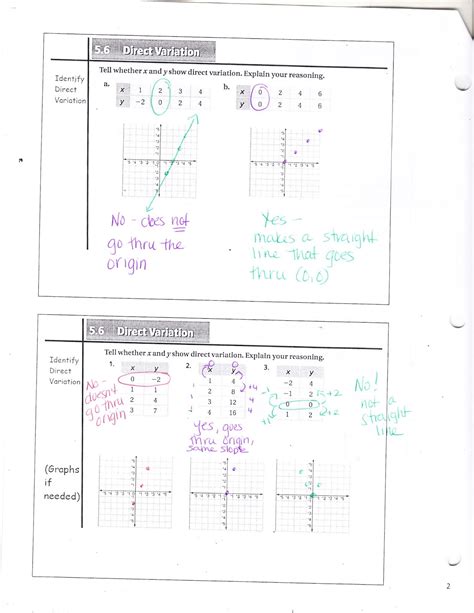 5.6 Direct Variation
Identify
Direct
Variation
Tell whether x and y show direct variation. Explain your reasoning.
a.
x 1 2 3 4
y −2 0 2 4
b.
x 0 2 4 6
y 0 2 4 6
No - does not
go thru the
origin
Yes -
makes a straight
line that goes
thru (0,0)
5.6 Direct Variation
Identify
Direct
Variation
Tell whether x and y show direct variation. Explain your reasoning.
1.
x y
0 −2
1 1
2 4
3 7
No -
doesn't
go thru
origin
2.
0 0
x y
1 4
2 8
3 12
4 16
+4
4
4
yes, goes
thru origin,
same slope
3.
x y
−2 4
−1 2
0 0
1 2
+2
+1
+2
No!
not a
straight
line
(Graphs
if
needed)
2